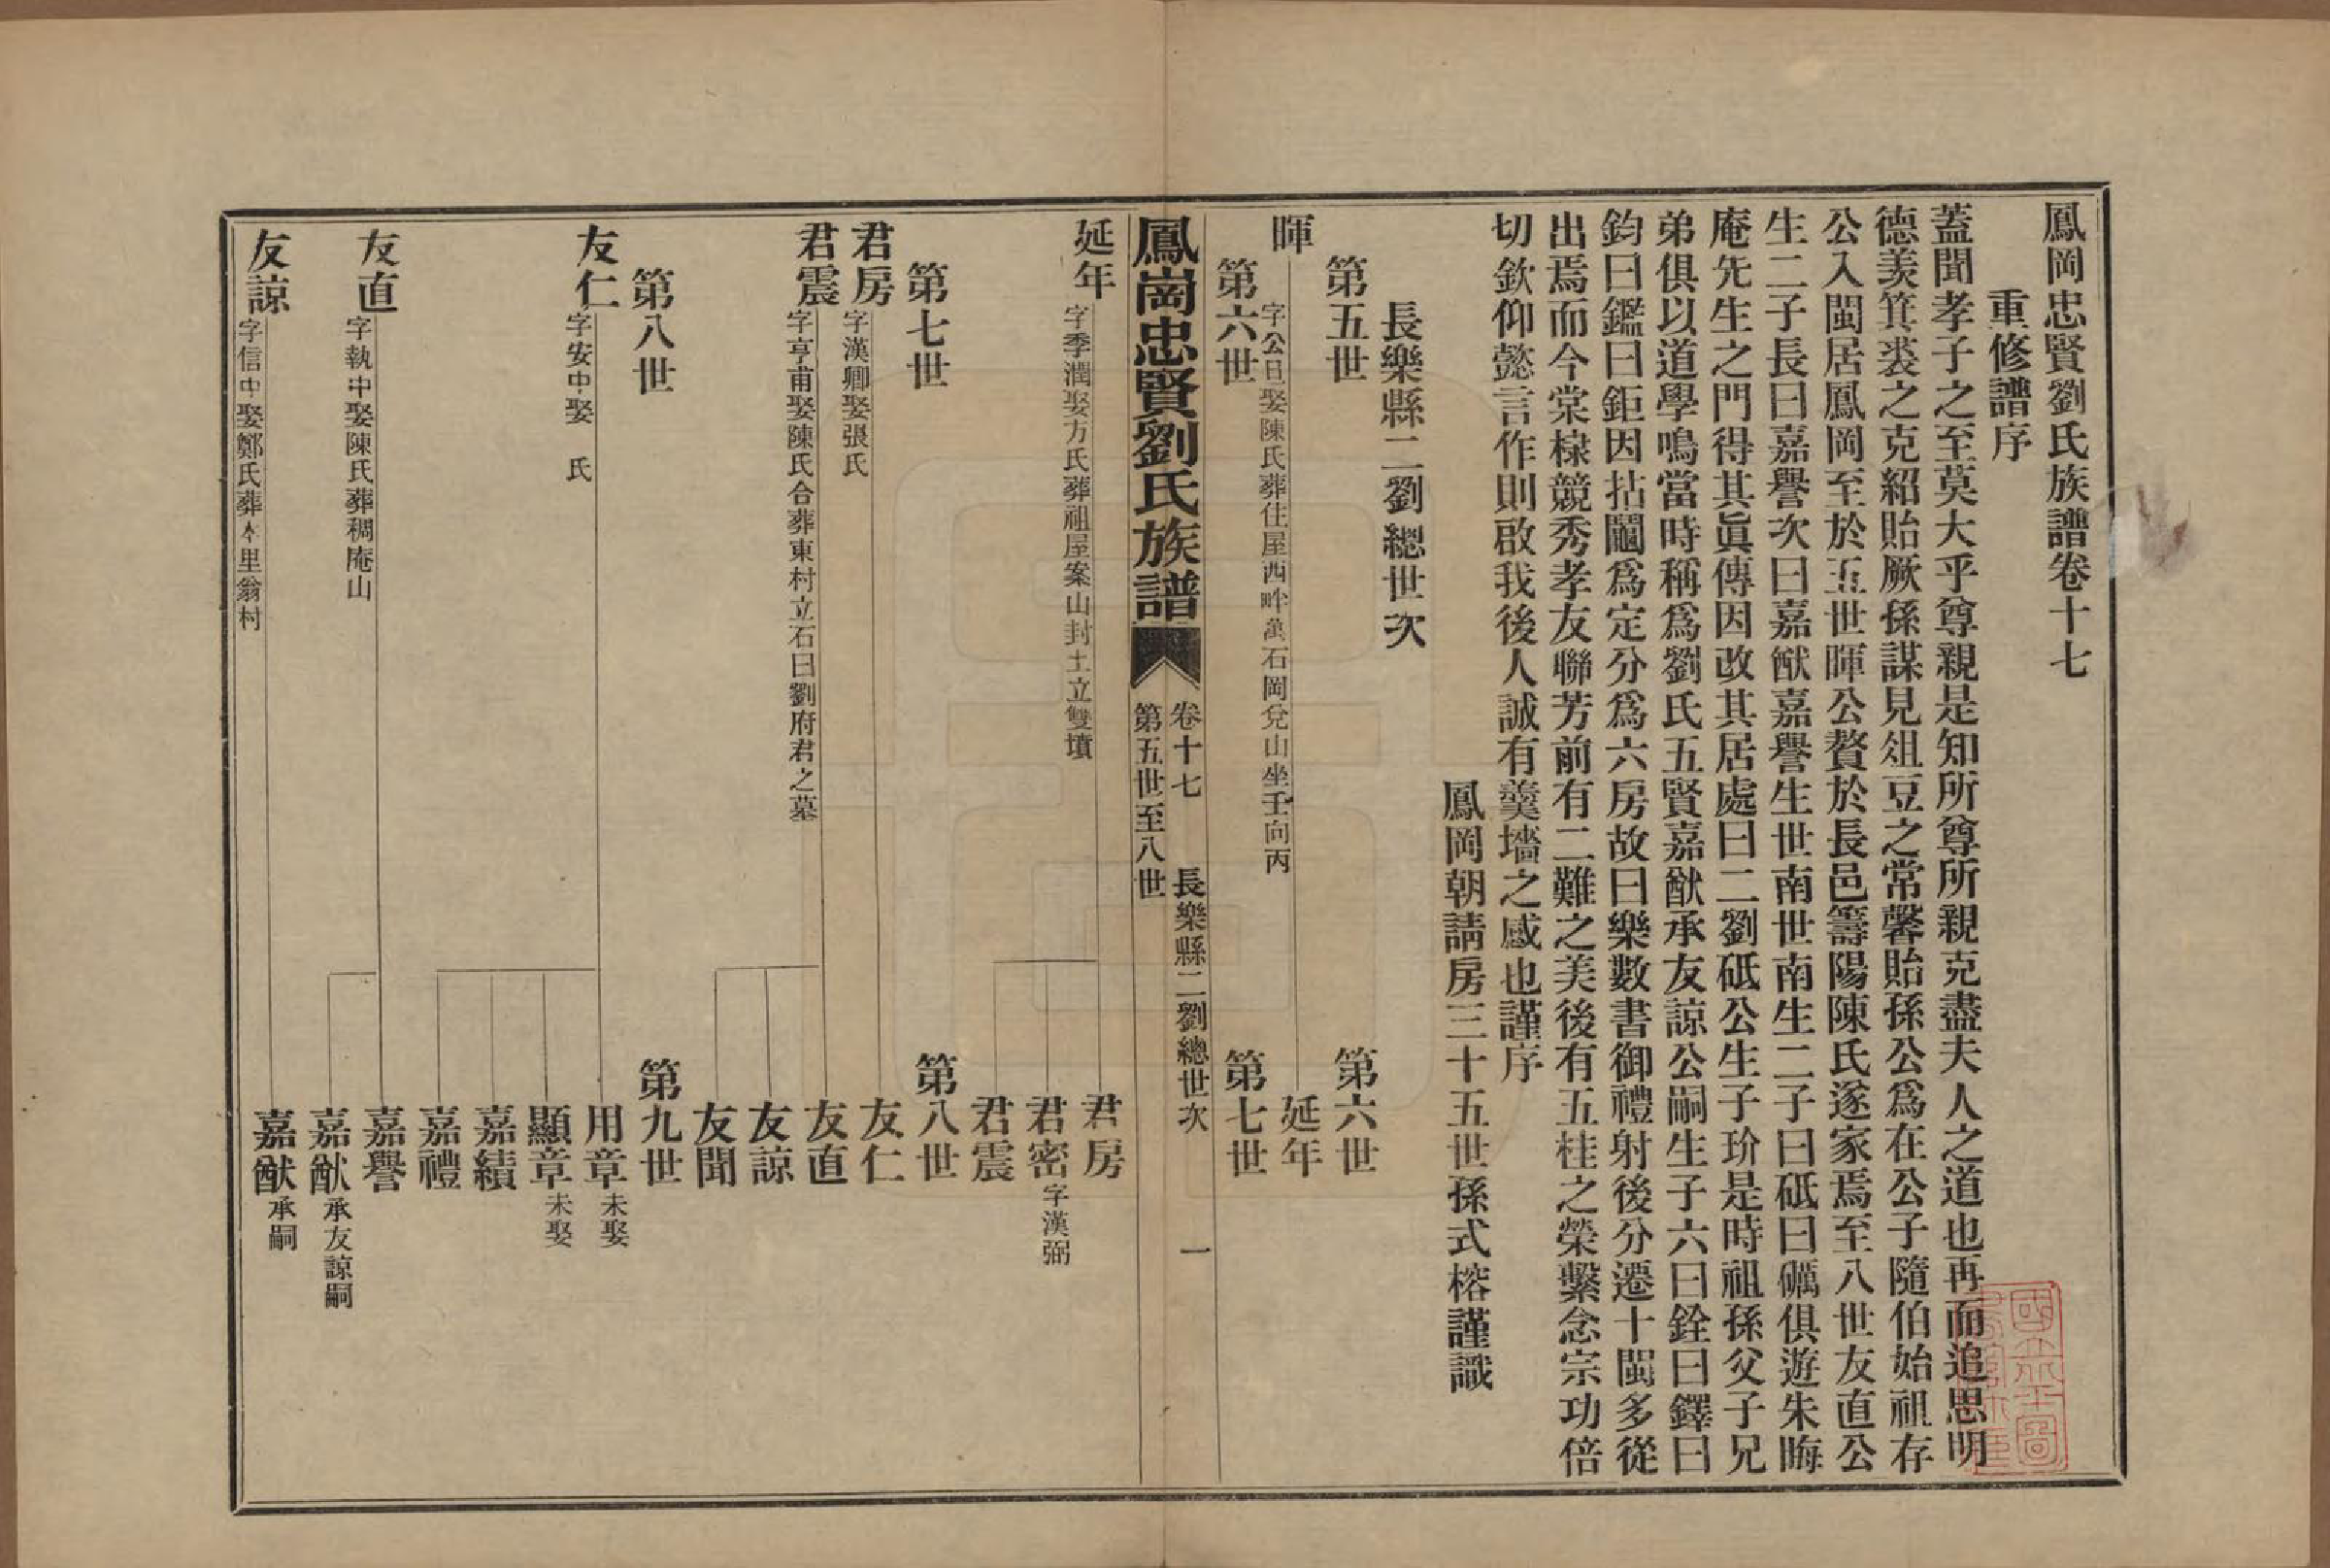 鳳岡忠賢劉氏族譜卷十七
重修譜序
蓋聞孝子之至莫大乎尊親是知所尊所親克盡夫人之道也再而追思明
德羡箕裘之克紹貽厥孫謀見俎豆之常馨貽孫公爲在公子隨伯始祖存
公入閩居鳳岡至於五世暉公贅於長邑籌陽陳氏遂家焉至八世友直公
生二子長曰嘉譽次曰嘉猷嘉譽生世南世南生二子曰砥曰礪俱遊朱晦
庵先生之門得其眞傳因改其居處曰二劉砥公生子玠是時祖孫父子兄
弟俱以道學鳴當時稱爲劉氏五賢嘉猷承友諒公嗣生子六曰銓曰鐸曰
鈞曰鑑曰鉅因拈鬮爲定分爲六房故曰樂數書御禮射後分遷十閩多從
出焉而今棠棣競秀孝友聯芳前有二難之美後有五桂之榮繫念宗功倍
切欽仰懿言作則啟我後人誠有羹墻之感也謹序
鳳岡朝請房三十五世孫式榕謹識
長樂縣二劉總世次
第五世
第六世
暉
字公日娶陳氏葬住屋西畔萬石岡兌山坐壬向丙
延年
第六世
第七世
鳳崗忠賢劉氏族譜
卷十七
長樂縣二劉總世次
一
第五世至八世
延年
字季潤娶方氏葬祖屋案山封土立雙墳
君房
君密字漢弼
君震
第七世
第八世
君房
字漢卿娶張氏
友仁
君震
字亨甫娶陳氏合葬東村立石曰劉府君之墓
友直
友諒
友聞
第八世
第九世
友仁
字安中娶 氏
用章未娶
顯章未娶
嘉績
嘉禮
友直
字執中娶陳氏葬稠庵山
嘉譽
嘉猷承友諒嗣
友諒
字信中娶鄭氏葬本里翁村
嘉猷承嗣